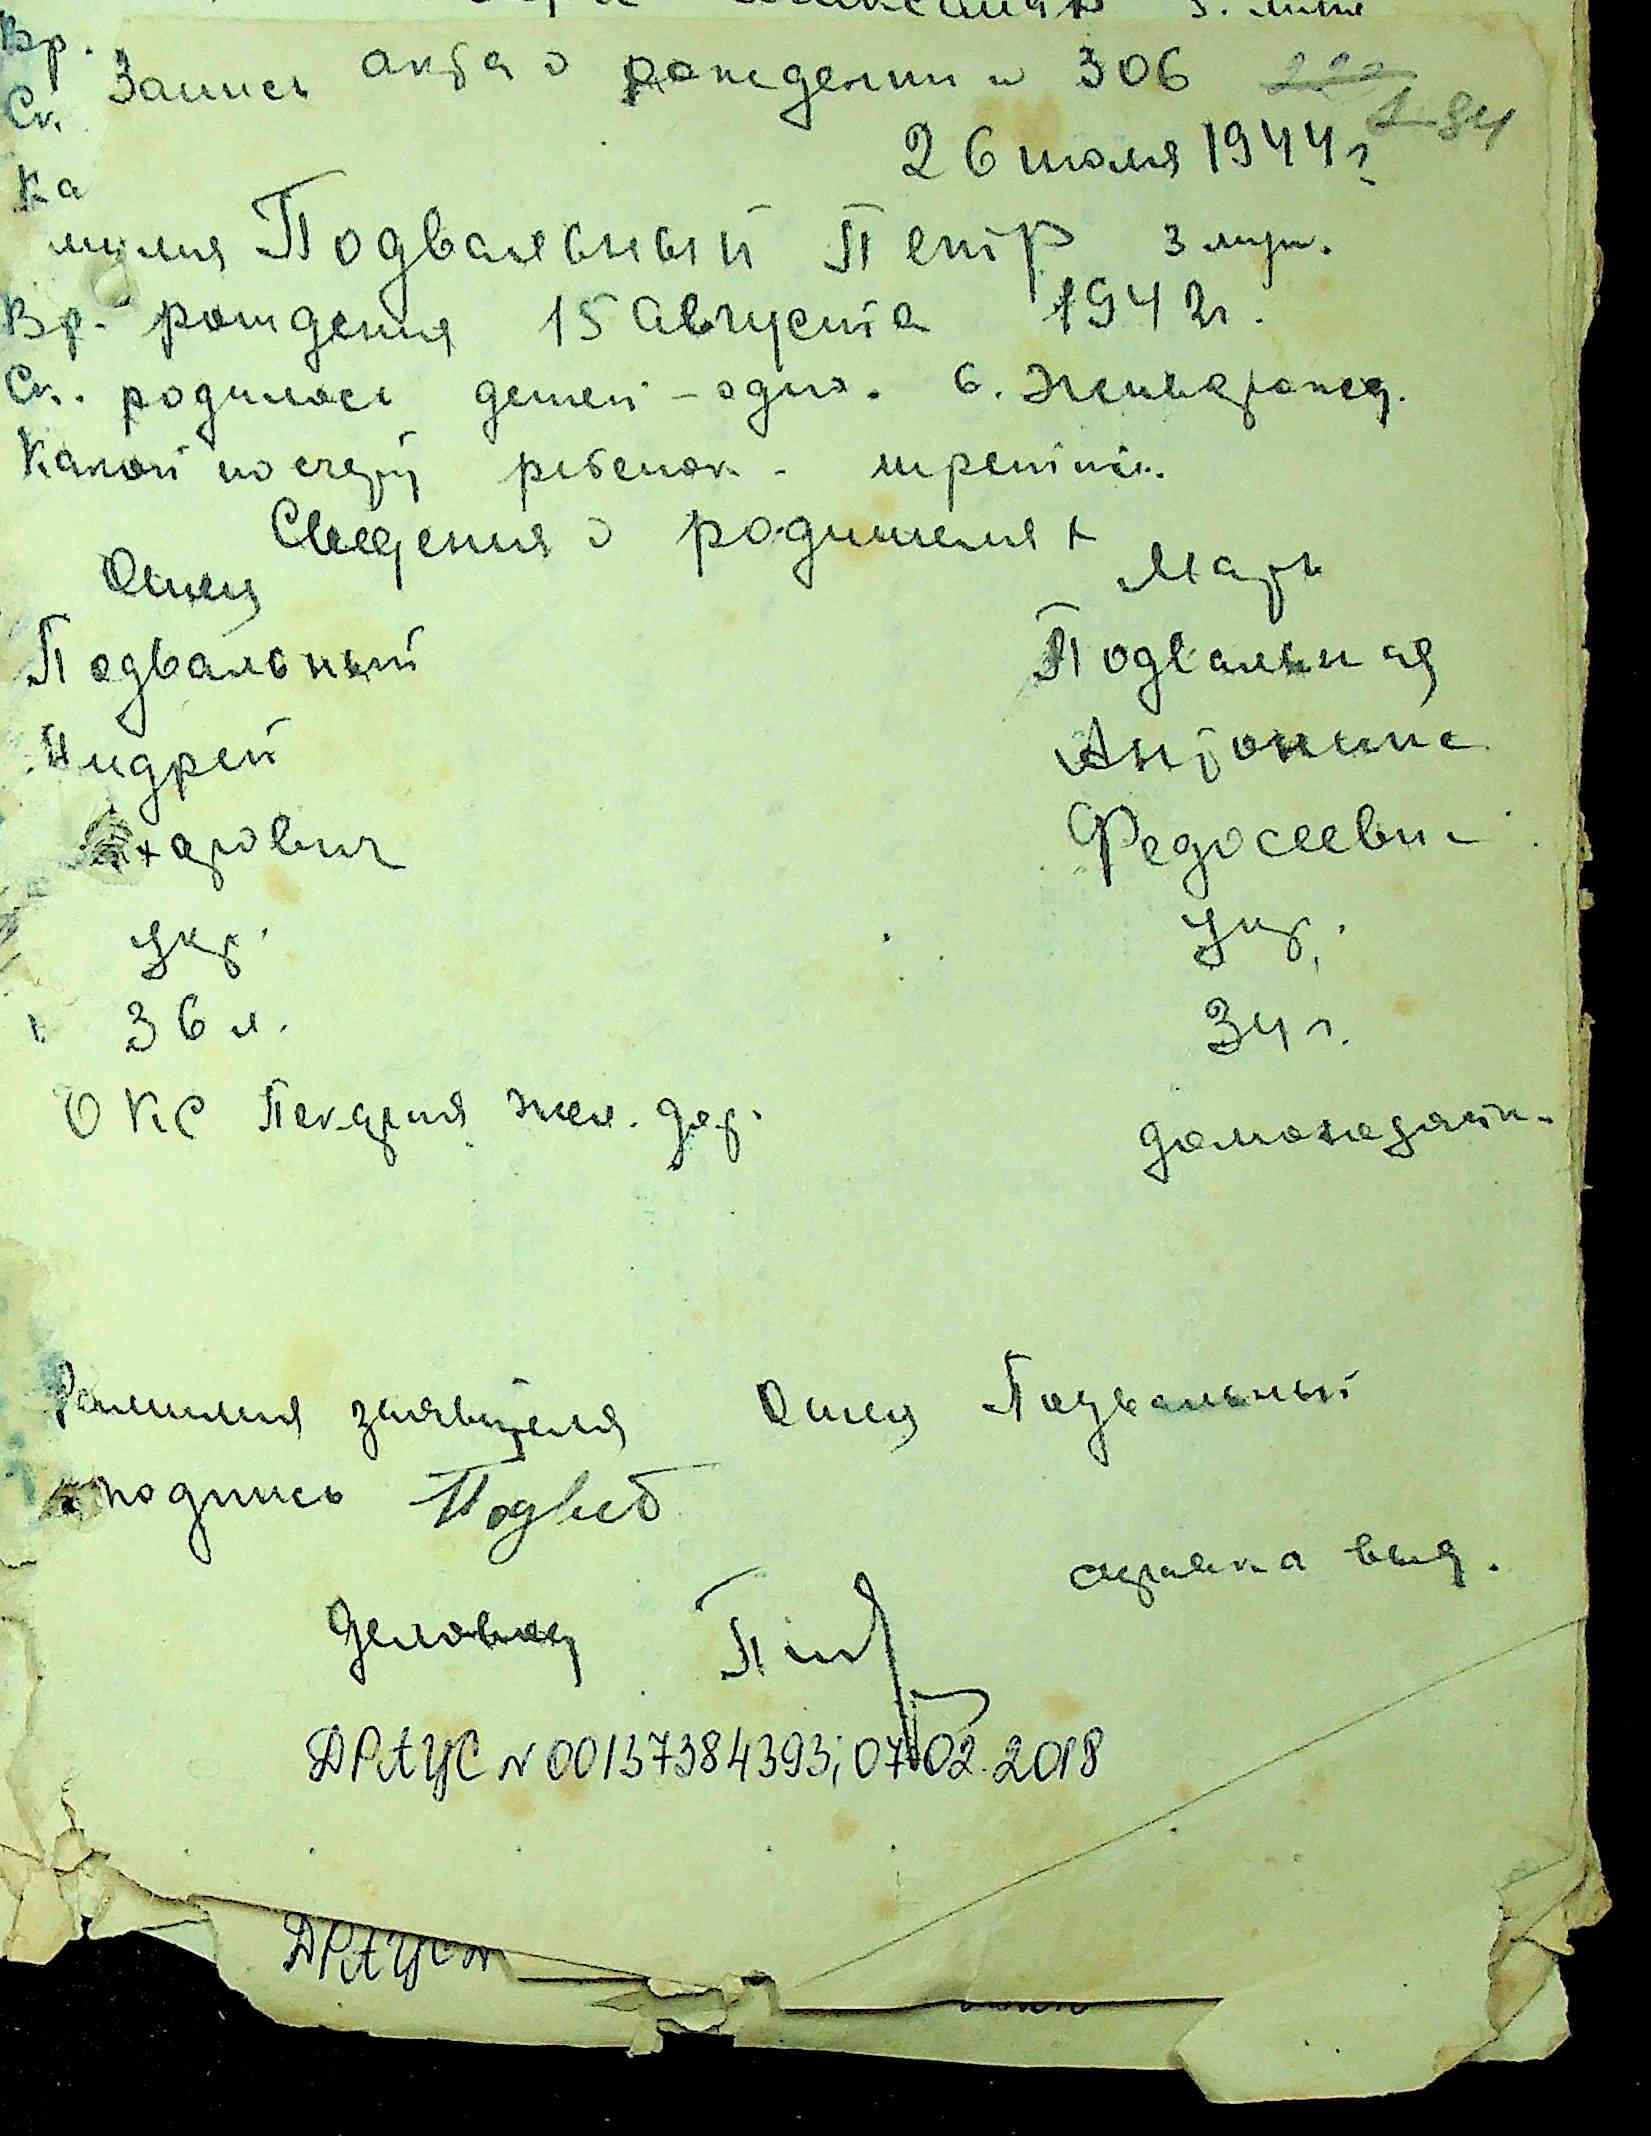 Вр.
Запись акта о рождении № 306
Ск.
184
26 июля 1944 г.
Ка
милия Подвальный Петр 3 муж.
Вр. рождения 15 Августа 1942 г.
Ск. родилось детей - одно. 6.
Какой по счету ребенок - третий.
Сведения о родителях
Отец Мать
Подвальный Подвальная
Андрей Антонина
харович Федосеевн
Укр. Укр.
36 л. 34 г.
ОКС Пекария жел. дор. домохозяйк.
Фамилия заявителя Отец Подвальный
подпись
справка выд.
Деловод
ДРАЦС N 00137384393; 07.02.2018
ДРАЦС N